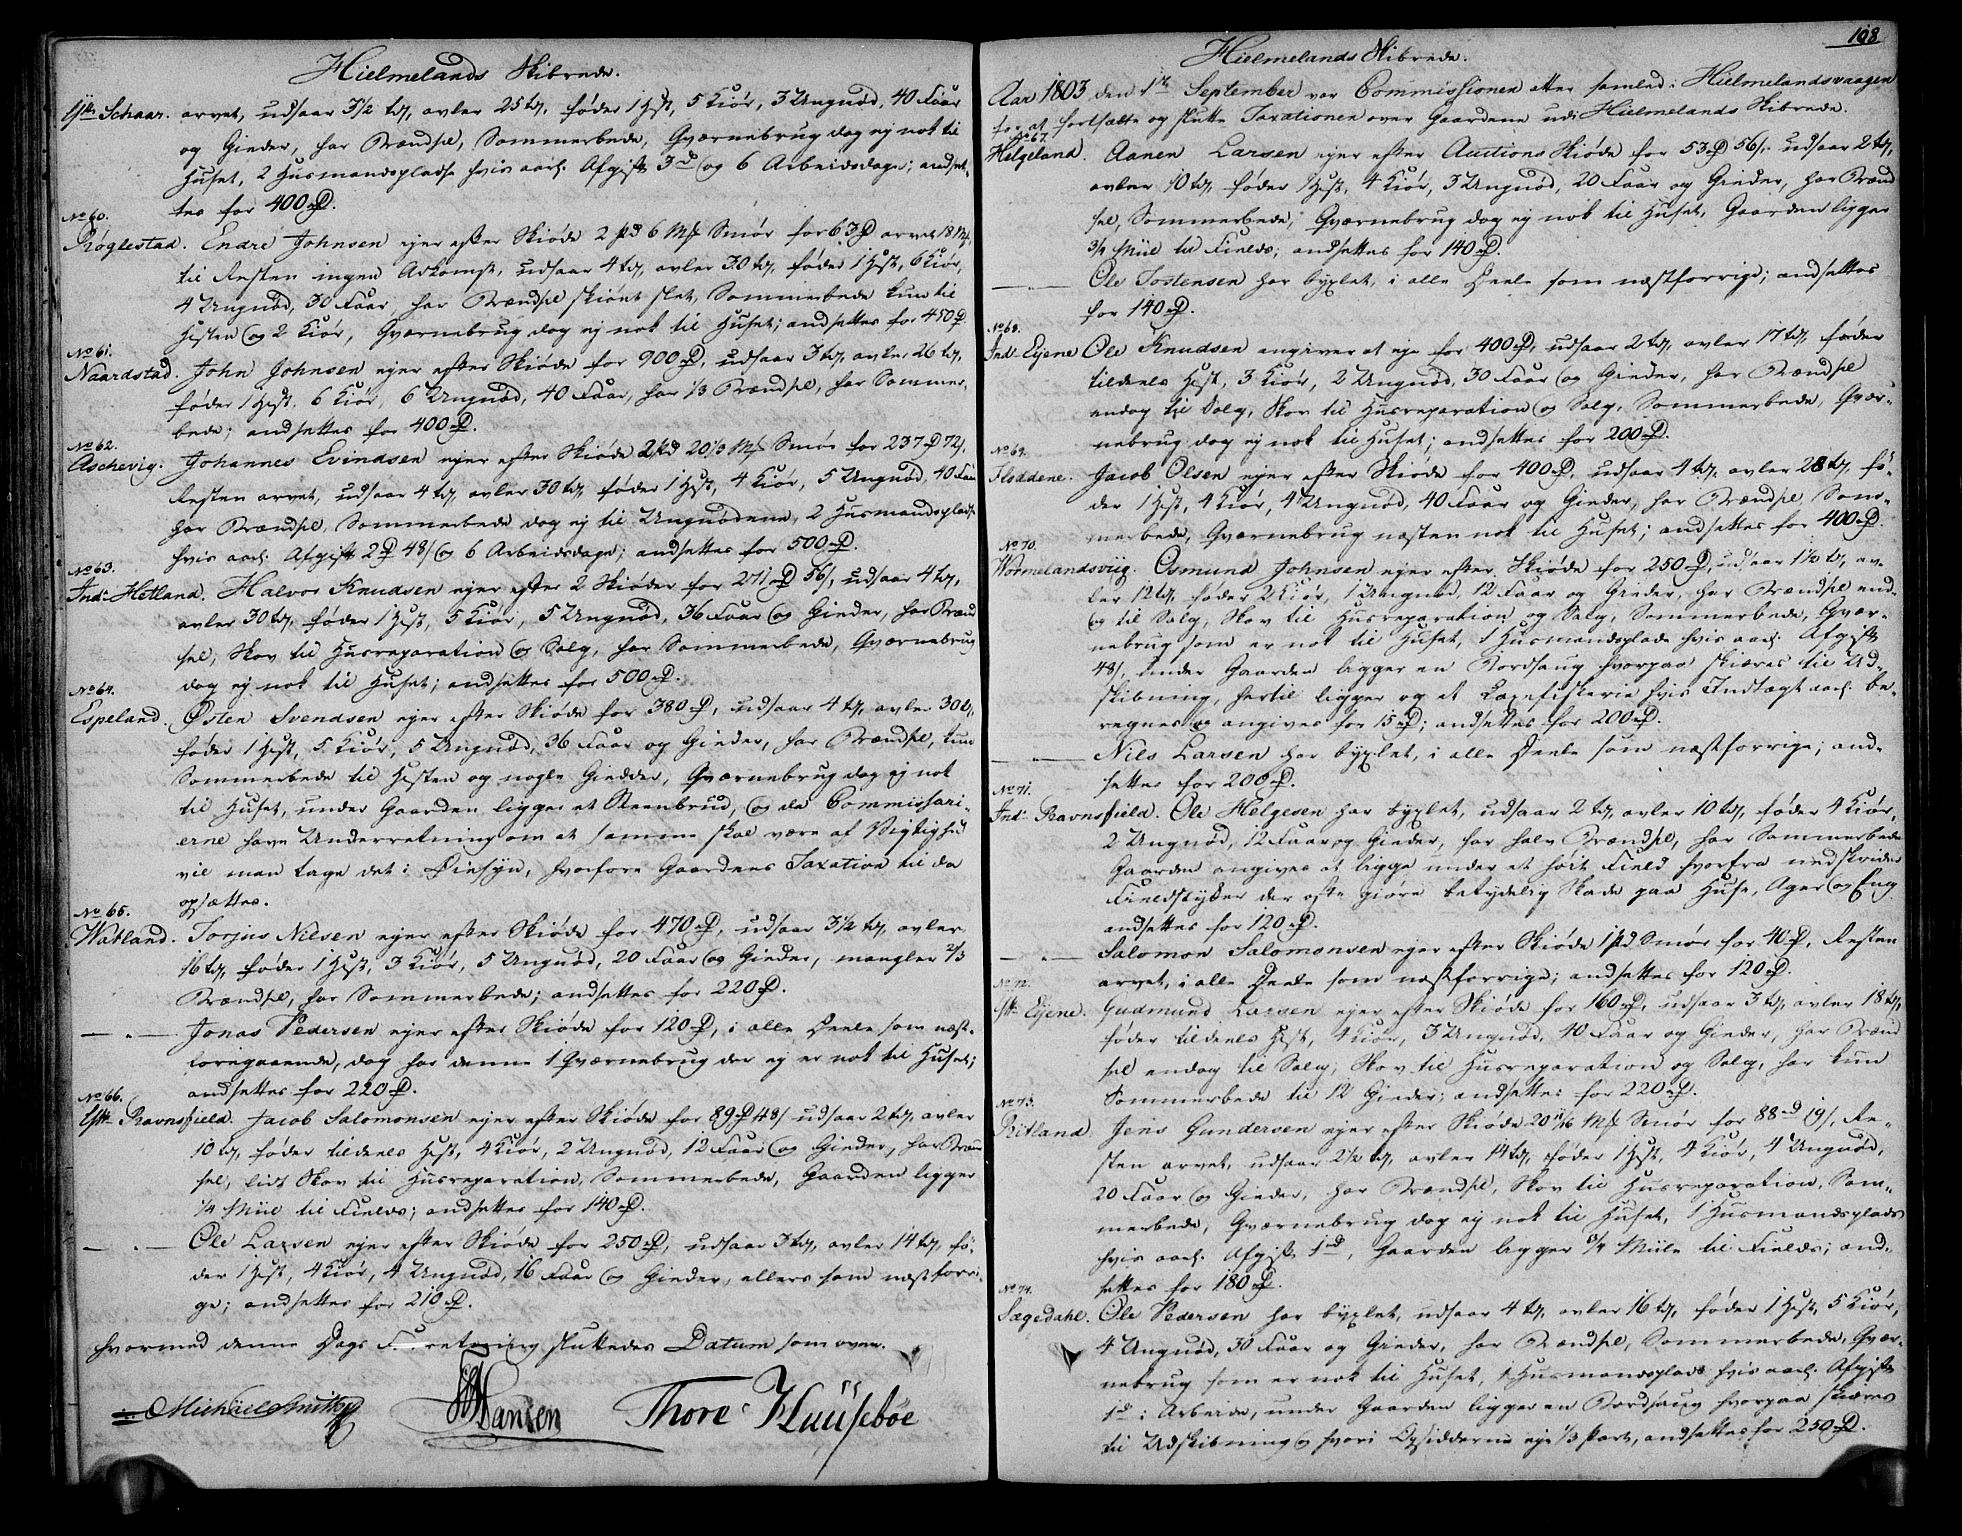 Hielmelands Skibrede.
Yttr Schaar. arvet, udsaar 3½ td, avler 25 td, føder 1 Hest, 5 Kiør, 3 Ungnød, 40 Faar
og Gieder, har Brændsel, Sommerbede, Qværnebrug dog ej nok til
Huset, 2 Husmandspladse hvis aarl: Afgift 3 d og 6 Arbeidsdage; andset-
tes for 400 D.
No 60.
Røglestad. Endre Johnsen ejer efter Skiøde 2 pd 6 Mk Smør for 63 D arvet 18 Mk,
til Resten ingen Adkomst, udsaar 4 td, avler 30 td, føder 1 Hest, 6 Kiør,
4 Ungnød, 30 Faar, har Brændsel skiønt slet, Sommerbede kun til
Hesten og 2 Kiør, Qværnebrug dog ej nok til Huset; andsettes for 450 D
No 61.
Naardstad. John Johnsen ejer efter Skiøde for 900 D, udsaar 3 td, avler 26 td,
føder 1 Hest, 6 Kiør, 6 Ungnød, 40 Faar, har 1/3 Brændsel, har Sommer-
bede; andsettes for 400 D.
No 62.
Aschevig. Johannes Evindsen ejer efter Skiøde 2 pd 20 1/3 Mk Smør for 237 D 72 s,
Resten arvet, udsaar 4 td, avler 30 td, føder 1 Hest, 4 Kiør, 5 Ungnød, 40 Faar
har Brændsel, Sommerbede dog ej til Ungnødene, 2 Husmandspladse
hvis aarl: Afgift 2 D 48 s og 6 Arbeidsdage; andsettes for 500 D.
No 63.
Ind: Hetland. Halvor Knudsen ejer efter 2 Skiøder for 271 D 56 s, udsaar 4 td,
avler 30 td, føder 1 Hest, 5 Kiør, 5 Ungnød, 36 Faar og Gieder, har Brænd
sel, Skov til Husreparation og Salg, har Sommerbede, Qværnebrug
dog ej nok til Huset; andsettes for 500 D.
No 64.
Espeland. Østen Svendsen ejer efter Skiøde for 380 D, udsaar 4 td, avler 30 td,
føder 1 Hest, 5 Kiør, 5 Ungnød, 36 Faar og Gieder, har Brændsel, kun
Sommerbede til Hesten og nogle Giedder, Qværnebrug dog ej nok
til Huset, under Gaarden ligger et Steenbrud, og da Commissari-
erne have Underretning om at samme skal være af Vigtighed
vil man tage det i Øiesyn, hvorfore Gaardens Taxation til da
opsættes.
No 65.
Watland. Torjus Nilsen ejer efter Skiøde for 470 D, udsaar 3½ td, avler
16 td, føder 1 Hest, 3 Kiør, 5 Ungnød, 20 Faar og Gieder, mangler 2/3
Brændsel, har Sommerbede; andsettes for 220 D.
— " — Jonas Pedersen ejer efter Skiøde for 120 D, i alle Deele som næst-
foregaaende, dog har denne 1 Qværnebrug der ej er nok til Huset;
andsettes for 220 D.
No 66.
Yttr Ravnsfield. Jacob Salomonsen ejer efter Skiøde for 89 D 48 s udsaar 2 td, avler
10 td, føder tildeels Hest, 4 Kiør, 2 Ungnød, 12 Faar og Gieder, har Brænd
sel, lidt Skov til Husreparation, Sommerbede, Gaarden ligger
1/4 Miil til Fields; andsettes for 140 D.
— " — Ole Larsen ejer efter Skiøde for 250 D, udsaar 3 td, avler 14 td, fø-
der 1 Hest, 4 Kiør, 4 Ungnød, 16 Faar og Gieder, ellers som næstforri-
ge; andsettes for 210 D.
Hvormed denne Dags Forretning sluttedes Datum som oven.
Michael Smith Hansen Thore Kluusebøe
108
Hielmelands Skibrede.
Aar 1803, den 1te September var Commissionen atter samled i Hielmelandsvaagen
for at fortsætte og slutte Taxationen over Gaardene udi Hielmelands Skibrede.
No 67.
Helgeland. Aanen Larsen ejer efter Auctions Skiøde for 53 D 56 s. udsaar 2 td,
avler 10 td, føder 1 Hest, 4 Kiør, 3 Ungnød, 20 Faar og Gieder, har Brænd
sel, Sommerbede, Qværnebrug dog ej nok til Huset, Gaarden ligger
3/4 Miil til Fields; andsettes for 140 D.
— " — Ole Tostensen har byxlet, i alle Deele som næstforrige; andsettes
for 140 D.
No 68.
Ind: Eyene Ole Knudsen angiver at eje for 400 D, udsaar 2 td, avler 17 td, føder
tildeels Hest, 3 Kiør, 2 Ungnød, 30 Faar og Gieder, har Brændsel
endog til Salg, Skov til Husreparation og Salg, Sommerbede, Qvær-
nebrug dog ej nok til Huset; andsettes for 200 D.
No 69.
Fladdene. Jacob Olsen ejer efter Skiøde for 400 D, udsaar 4 td, avler 28 td, fø-
der 1 Hest, 4 Kiør, 4 Ungnød, 40 Faar og Gieder, har Brændsel Som-
merbede, Qværnebrug næsten nok til Huset; andsettes for 400 D.
No 70.
Wormelandsviig. Osmund Johnsen ejer efter Skiøde for 250 D, udsaar 1½ td, av-
ler 12 td, føder 2 Kiør, 1 Ungnød, 12 Faar og Gieder, har Brændsel end-
og til Salg, Skov til Husreparation og Salg, Sommerbede, Qvær-
nebrug som er nok til Huset, 1 Husmandsplads hvis aarl: Afgift
48 s, under Gaarden ligger en Bordsaug hvorpaa skiæres til Ud-
skibning, hertil ligger og et Laxefiskerie hvis Indtægt aarl: be-
regnes og angives for 15 D; andsettes for 200 D.
— " — Nils Larsen har byxlet, i alle Deele som næstforrige; and-
settes for 200 D.
No 71.
Ind: Ravnsfield. Ole Helgesen har byxlet, udsaar 2 td, avler 10 td, føder 4 Kiør,
2 Ungnød, 12 Faar og Gieder, har halv Brændsel, har Sommerbede
Gaarden angives at ligge under et høit Field hvorfra nedskrider
Fieldstykker der ofte giøre betydelig Skade paa Huse, Ager og Eng
andsettes for 120 D.
— " — Salomon Salomonsen ejer efter Skiøde 1 pd Smør for 40 D, Resten
arvet, i alle Deele som næstforrige; andsettes for 120 D.
No 72.
Ytt: Eyene. Gudmund Larsen ejer efter Skiøde for 160 D, udsaar 3 td, avler 18 td,
føder tildeels Hest, 4 Kiør, 3 Ungnød, 40 Faar og Gieder, har Brænd
sel endog til Salg, Skov til Husreparation og Salg, har kun
Sommerbede til 12 Gieder; andsettes for 220 D.
No 73.
Ritland. Jens Gundersen ejer efter Skiøde 20 11/16 Mk Smør for 88 d 19 s, Re-
sten arvet, udsaar 2½ td, avler 14 td, føder 1 Hest, 4 Kiør, 4 Ungnød,
20 Faar og Gieder, har Brændsel, Skov til Husreparation, Som-
merbede, Qværnebrug dog ej nok til Huset, 1 Husmandsplads
hvis aarl: Afgift 1 d, Gaarden ligger 5/4 Miile til Fields; and-
settes for 180 D.
No 74.
Sægedahl. Ole Pedersen har byxlet, udsaar 4 td, avler 16 td, føder 1 Hest, 5 Kiør,
4 Ungnød, 30 Faar og Gieder, har Brændsel, Sommerbede, Qvær-
nebrug som er nok til Huset, 1 Husmandsplads hvis aarl: Afgift
1 d i Arbeide, under Gaarden ligger en Bordsaug hvorpaa skiæres
til Udskibning og hvori Opsidderne eje 1/3 Part, andsettes for 250 D.